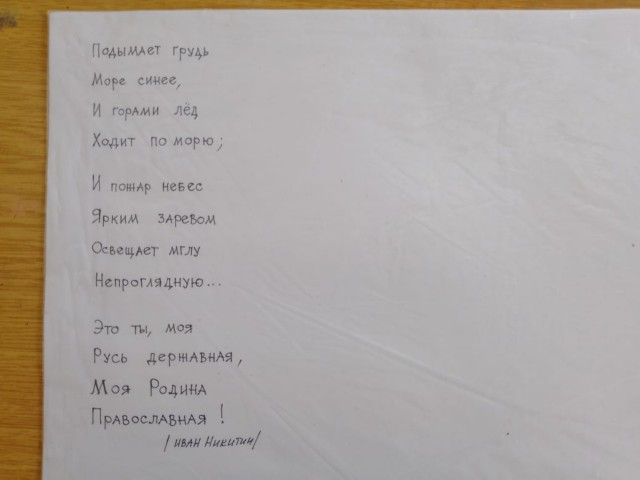 Подымает грудь
Море синее,
И горами лёд
Ходит по морю;
И пожар небес
Ярким заревом
Освещает мглу
Непроглядную...
Это ты, моя
Русь державная,
Моя Родина
Православная!
/Иван Никитин/